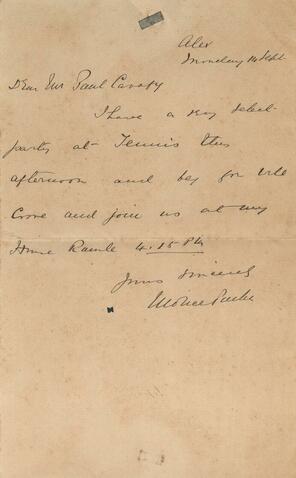 Alex
Monday 14 Sept.
Dear Mr Paul Cavafy
I have a very select
party at Tennis this
afternoon and beg you will
Come and join us at my
House Ramle 4.15 PM
Yours sincerely